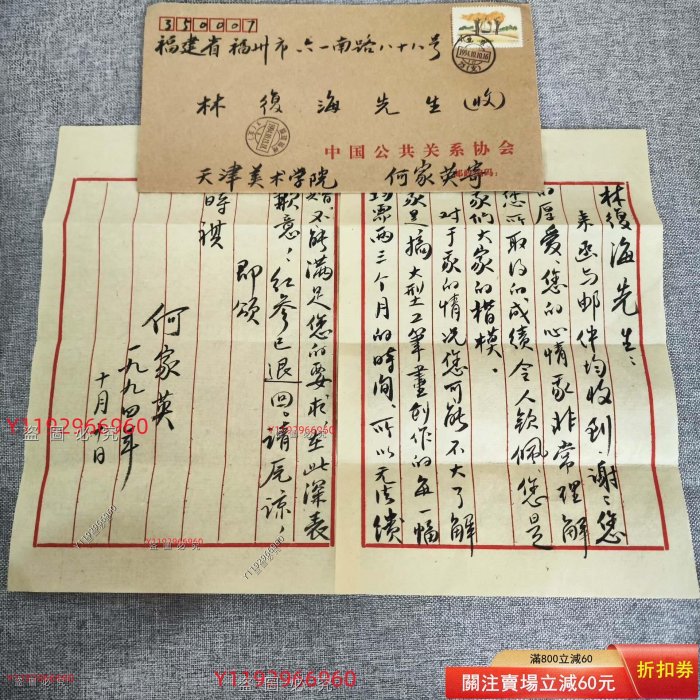 350007
福建省福州市六一南路八十八号
林復海先生(收)
中国公共关系协会
天津美术学院 何家英寄
林復海先生:
来函与邮件均收到,谢谢您
的厚爱,您的心情我非常理解
您所取得的成绩令人钦佩,您是
家们大家的楷模。
对于我的情况您可能不大了解
我是搞大型工筆畫创作的,每一幅
均需两三个月的时间,所以无法
不能满足您的要求,至此深表
歉意!红参已退回。请原谅,
即颂
时祺
何家英
一九九四年
十月 日
Y1192966960
盗圖必究
Y1192966960
盗圖必究
Y1192966960
盗圖必究
Y1192966960
滿800立減60
關注賣場立減60元
折扣券